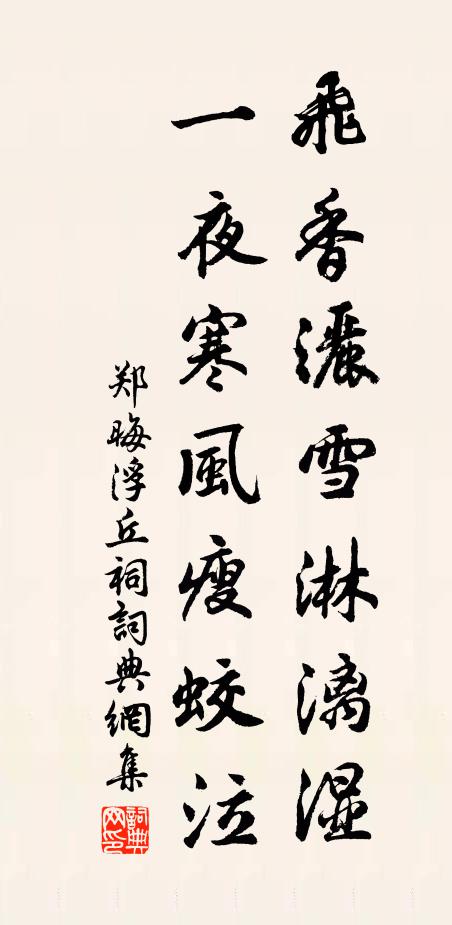 飛香灑雪淋漓湿
一夜寒風瘦蛟泣
郑晦浮丘祠詞典網集
詞典網印